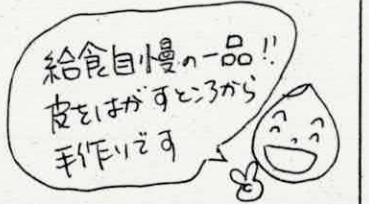 給食自慢の一品!!
皮をはがすところから
手作りです